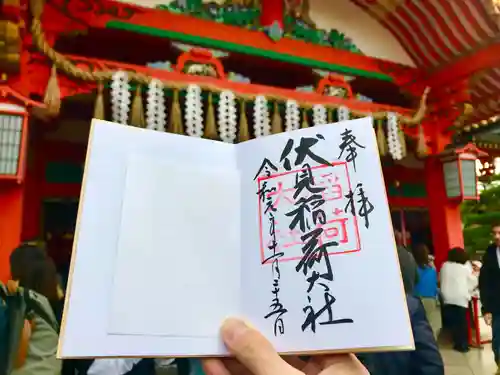 奉拝
伏見稲荷大社
令和元年十一月二十五日